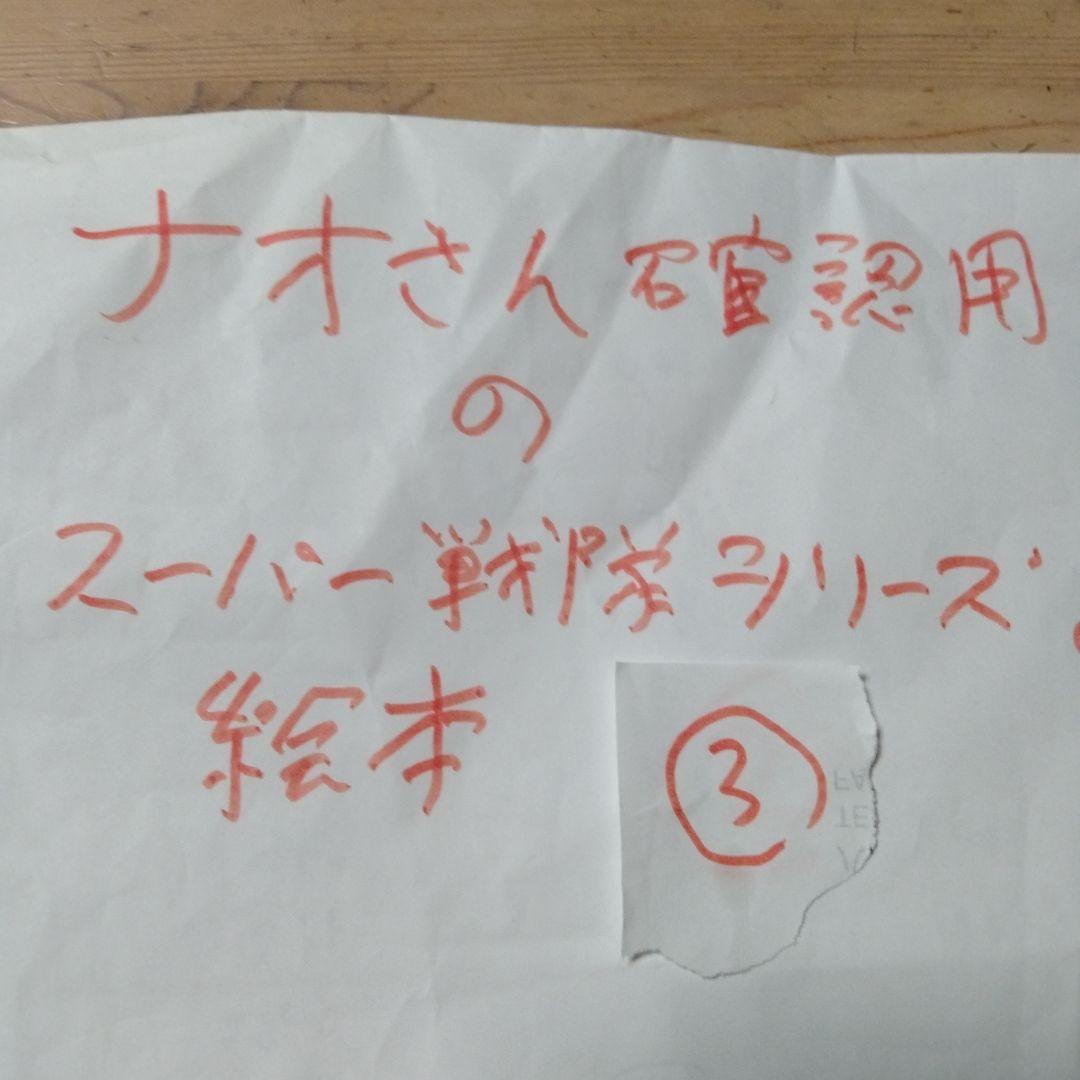 ナオさん確認用
の
スーパー戦隊シリーズ
絵本 ③